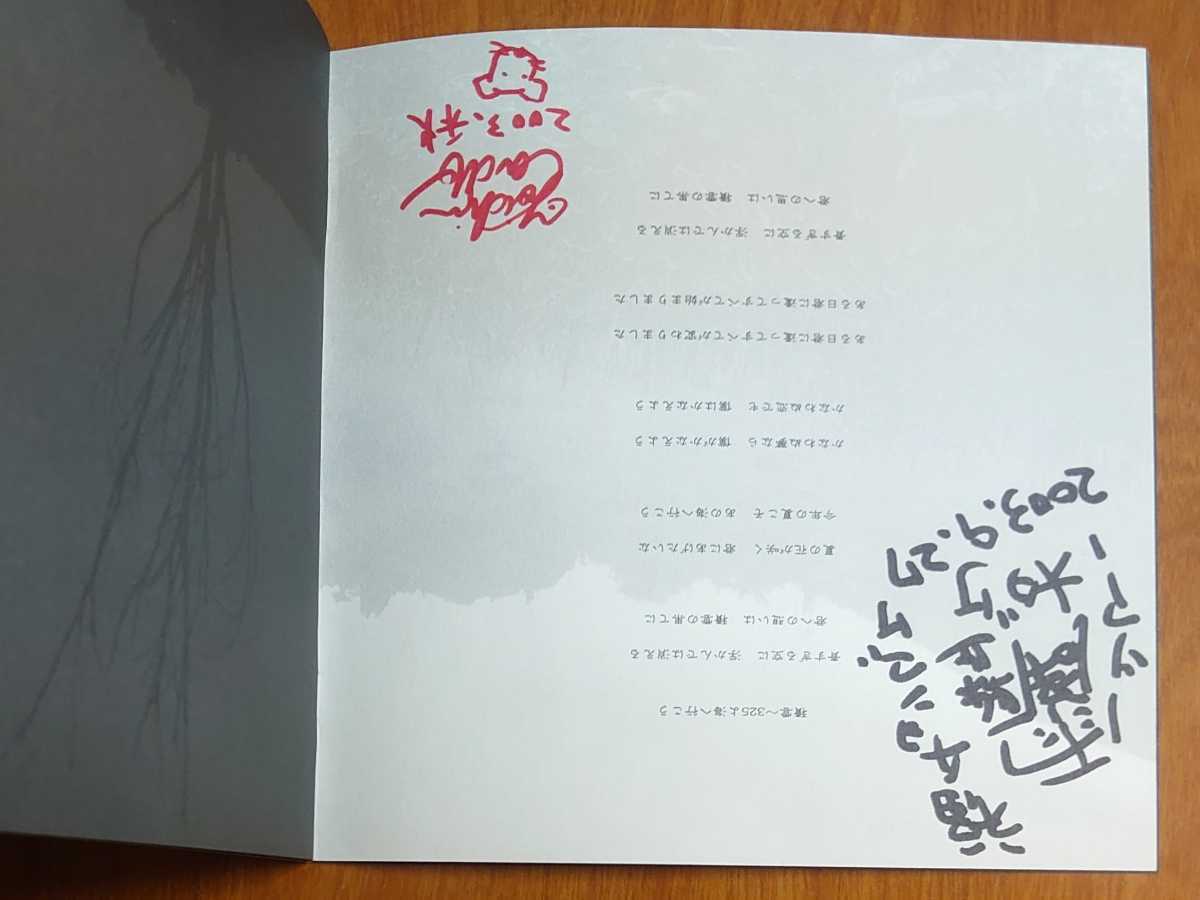 積雲〜325よ海へ行こう
蒼すぎる空に　浮かんでは消える
君への想いは　積雲の果てに
夏の花が咲く　君にあげたいな
今年の夏こそ　あの海へ行こう
かなわぬ夢なら　僕がかなえよう
かなわぬ恋でも　僕はかなえよう
ある日君に逢ってすべてが変わりました
ある日君に逢ってすべてが始まりました
蒼すぎる空に　浮かんでは消える
君への思いは　積雲の果てに
2003.秋
2003.9.27